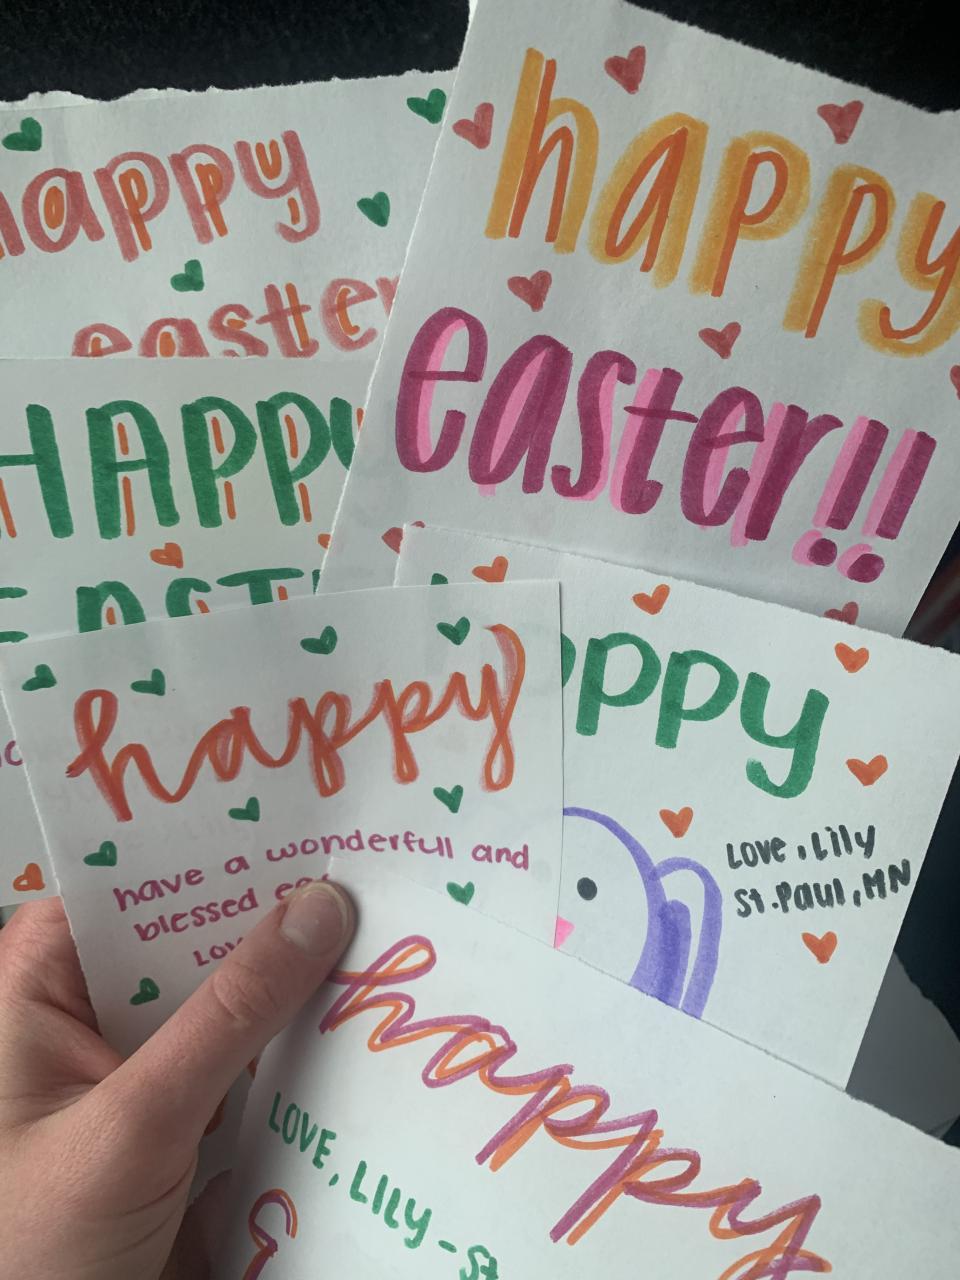 happy
easter
happy
easter!!
HAPPY
EASTE
happy
have a wonderful and
blessed
ppy
Love, Lily
St. Paul, MN
happy
LOVE, LILY - St